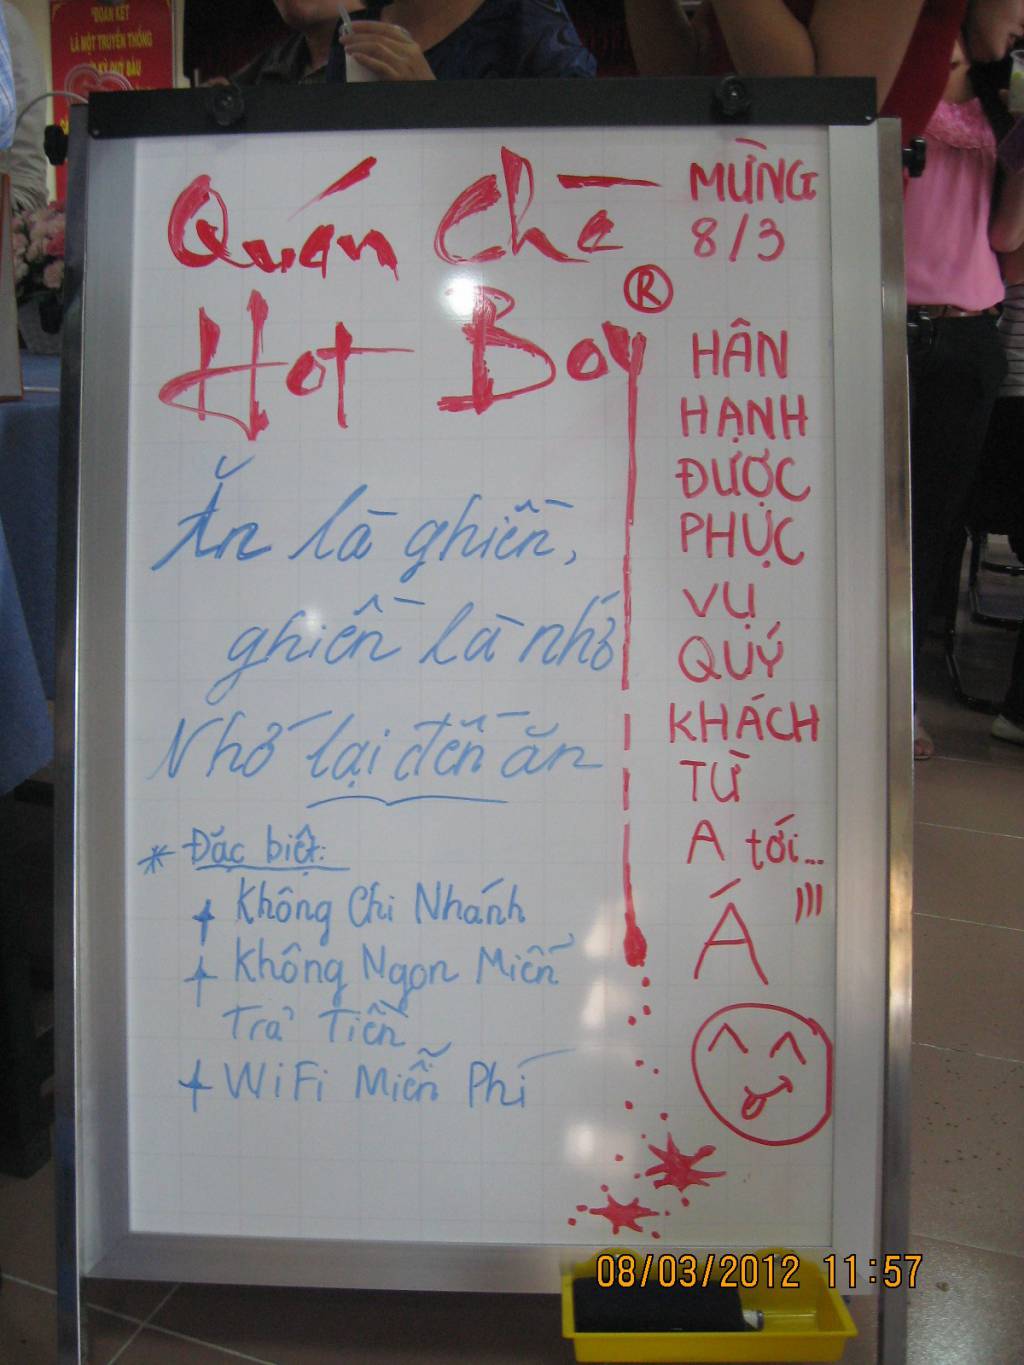 "ĐOÀN KẾT
LÀ MỘT TRUYỀN THỐNG
KỲ QUÝ BÁU
Quán Chè
Hot Boy ®
Ăn là ghiền,
ghiền là nhớ
Nhớ lại đến ăn
* Đặc biệt:
+ Không Chi Nhánh
+ Không Ngon Miễn
Trả Tiền
+ WiFi Miễn Phí
MỪNG
8/3
HÂN
HẠNH
ĐƯỢC
PHỤC
VỤ
QUÝ
KHÁCH
TỪ
A tới...
Á !!!
08/03/2012 11:57